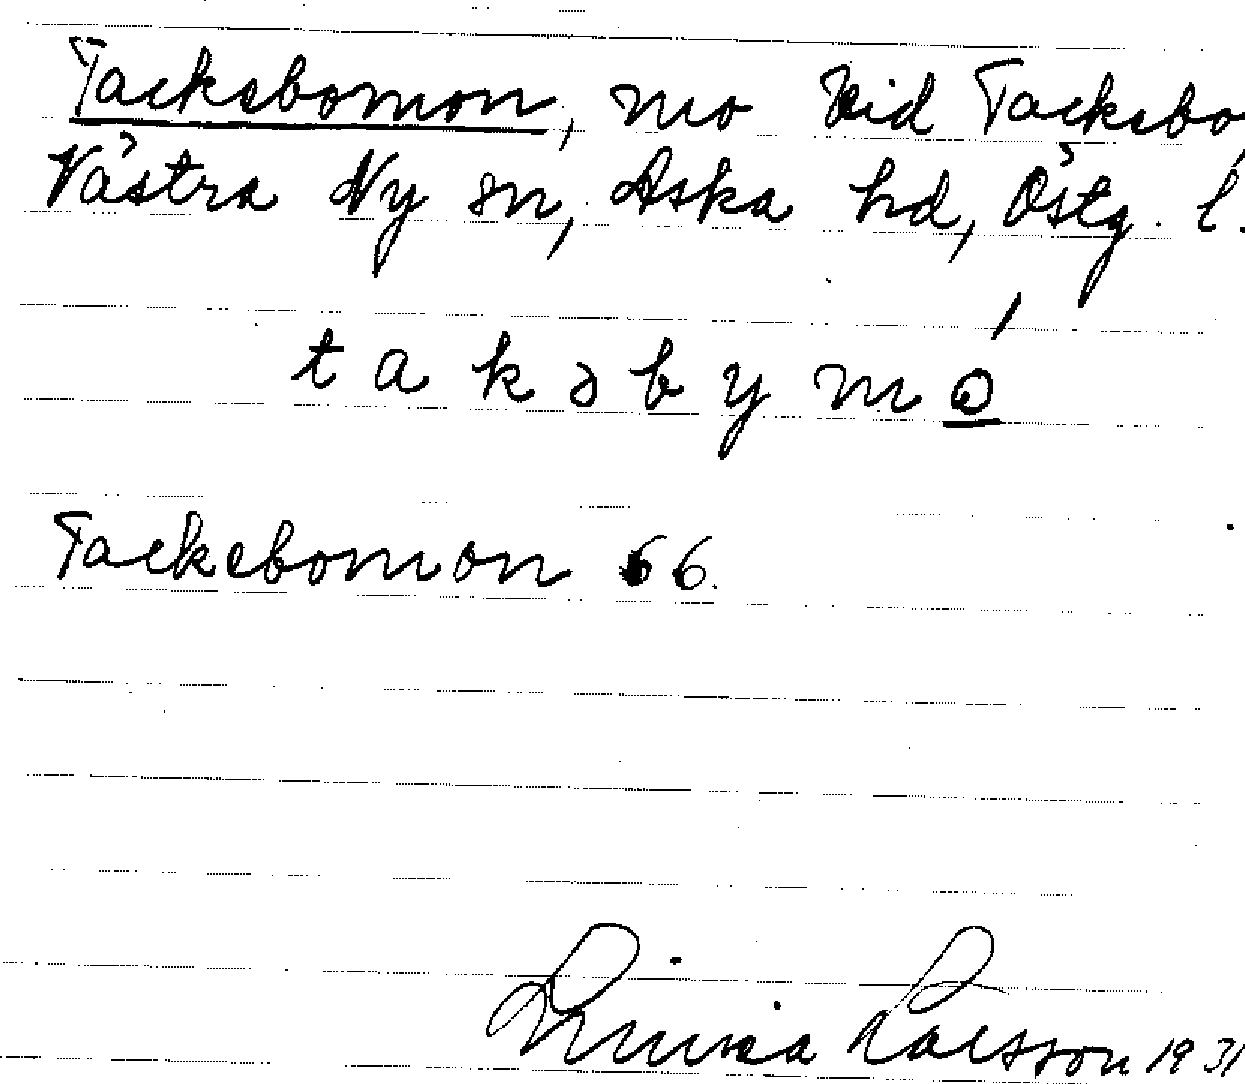 Tacksbomon, mo vid Tacksbo,
Västra Ny sn, Aska hd, Östg. l.
t a k s b y m o̲ ́
Tacksbomon 66.
Linnéa Larsson 1931